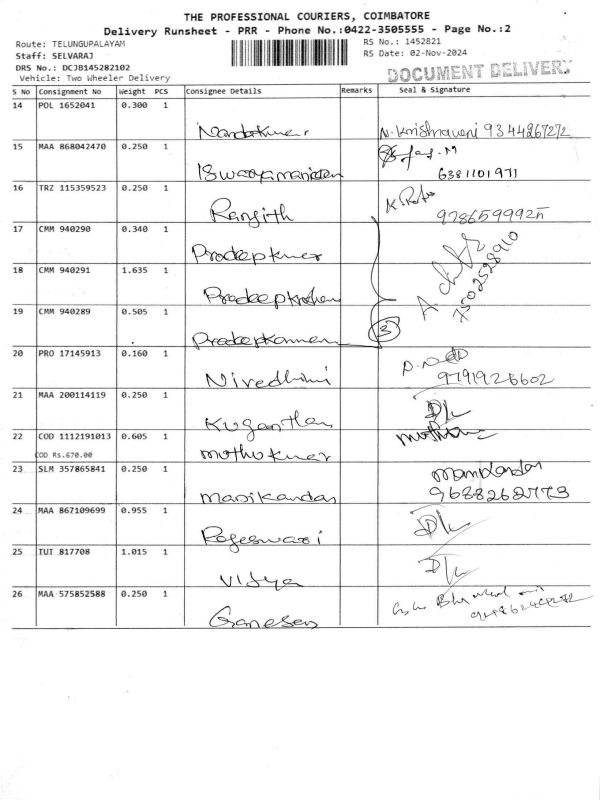 THE PROFESSIONAL COURIERS, COIMBATORE
Delivery Runsheet - PRR - Phone No.:0422-3505555 - Page No.:2
Route: TELUNGUPALAYAM RS No.: 1452821
Staff: SELVARAJ RS Date: 02-Nov-2024
DRS No.: DCJB145282102
DOCUMENT DELIVERY
Vehicle: Two Wheeler Delivery
S No Consignment No Weight PCS Consignee Details Remarks Seal & Signature
14 POL 1652041 0.300 1
Nandakumar N. Krishnaveni 9344267272
15 MAA 868042470 0.250 1
Iswaryamanickam 6381101971
16 TRZ 115359523 0.250 1
Ranjith
17 CMM 940290 0.340 1
Pradeepkumar
18 CMM 940291 1.635 1
7502528910
19 CMM 940289 0.505 1
3
20 PRO 17145913 0.160 1
Nivedhini 9791926602
21 MAA 200114119 0.250 1
22 COD 1112191013 0.605 1
COD Rs.670.00 Mothukumar
23 SLM 357865841 0.250 1
Manikandan 9688268773
24 MAA 867109699 0.955 1
Rajeswari
25 TUT 817708 1.015 1
Vidya
26 MAA 575852588 0.250 1
Ganesan